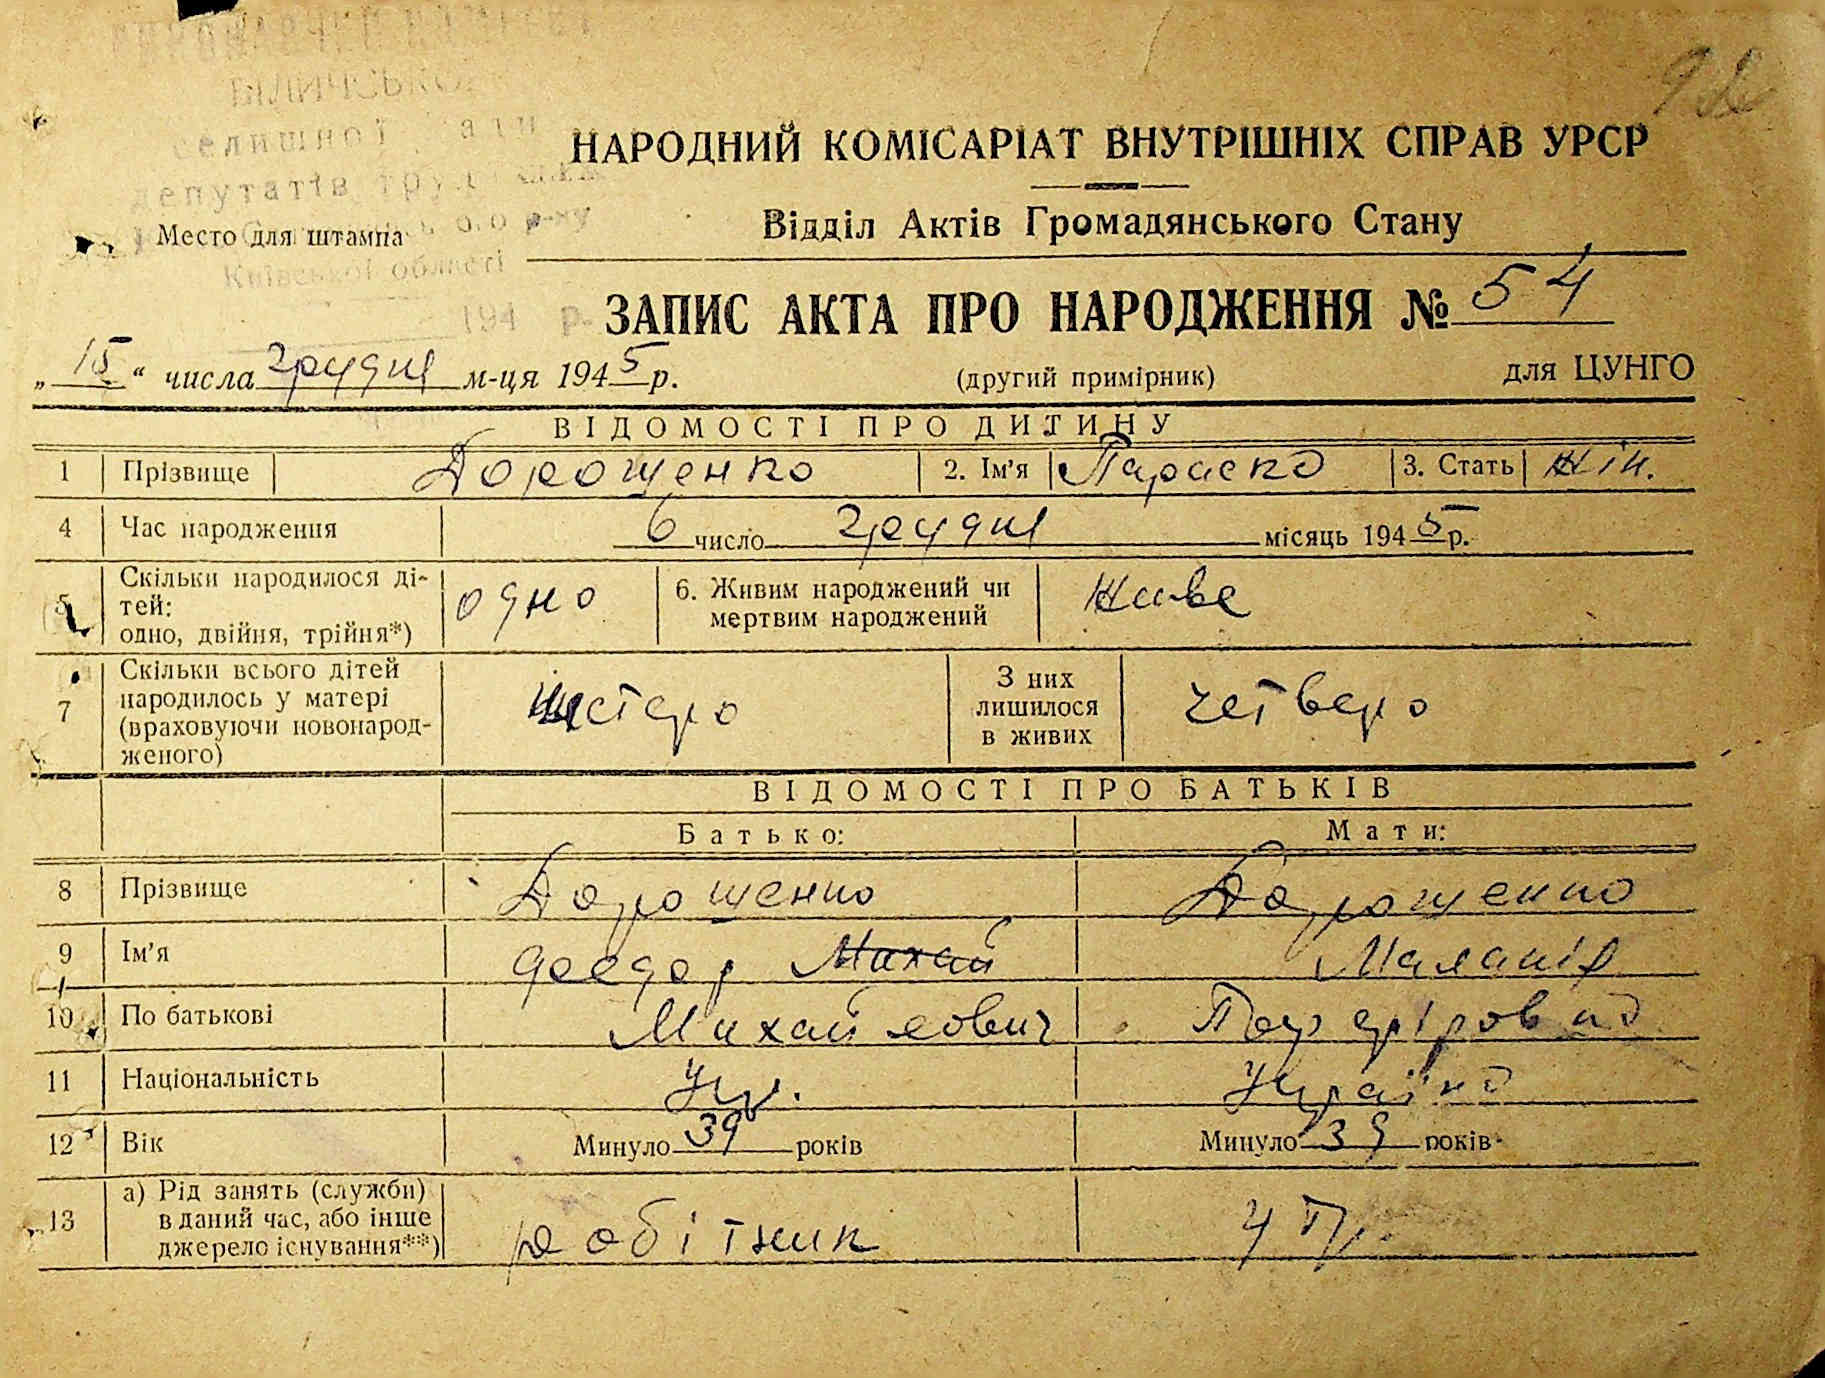 ВИКОНАВЧИЙ КОМІТЕТ
БІЛИЧСЬКОЇ
селищної ради
депутатів
р-ну
Київської області
194 р.
НАРОДНИЙ КОМІСАРІАТ ВНУТРІШНІХ СПРАВ УРСР
Место для штампа
Відділ Актів Громадянського Стану
ЗАПИС АКТА ПРО НАРОДЖЕННЯ № 54
„15“ числа грудня м-ця 1945 р.
(другий примірник)
для ЦУНГО
ВІДОМОСТІ ПРО ДИТИНУ
1 Прізвище Дорошенко 2. Ім'я Параска 3. Стать жін.
4 Час народження 6 число грудня місяць 1945 р.
5 Скільки народилося ді-
тей:
одно, двійня, трійня*) одно
6. Живим народжений чи
мертвим народжений живе
7 Скільки всього дітей
народилось у матері
(враховуючи новонарод-
женого) шестеро
З них
лишилося
в живих четверо
ВІДОМОСТІ ПРО БАТЬКІВ
Батько: Мати:
8 Прізвище Дорошенко Дорошенко
9 Ім'я Федор Михай Маланія
10 По батькові Михайлович
11 Національність Укр. Українка
12 Вік Минуло 39 років Минуло 39 років
13 а) Рід занять (служби)
в даний час, або інше
джерело існування**) робітник